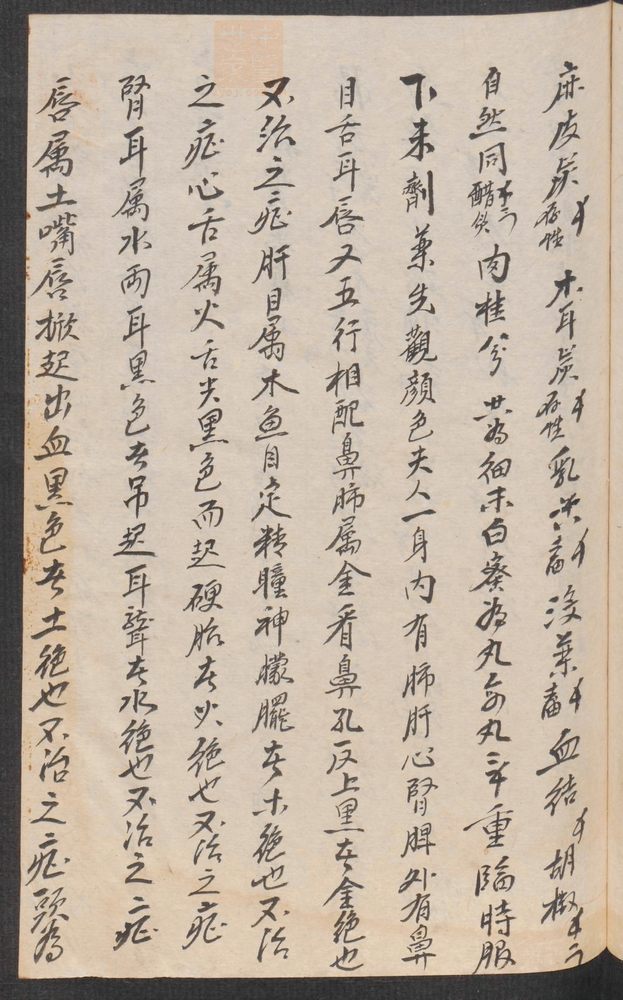 麻皮炭存性 木耳炭存性 乳米畜 没藥畜 血結 胡椒
自然同醋 肉桂 共為細末白蜜為丸 丸 重 臨時服
下未劑藥先觀顏色夫人一身內有肺肝心腎脾外有鼻
目舌耳唇又五行相配鼻肺属金看鼻孔反上黑者金絶也
不治之症肝目属木魚目定精瞳神矇矓者木絶也不治
之症心舌属火舌尖黑色而起硬胎者火絶也不治之症
腎耳属水兩耳黑色者吊起耳聾者水絶也不治之症
唇属土嘴唇掀起出血黑色者土絶也不治之症頭為